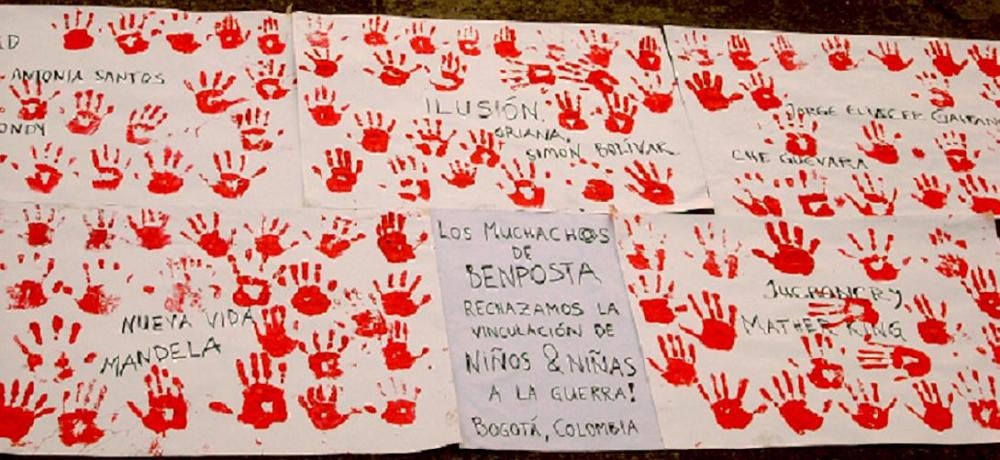 ANTONIA SANTOS
ILUSIÓN.
ORIANA,
SIMÓN BOLÍVAR
JORGE ELIECER GAITAN
CHE GUEVARA
NUEVA VIDA
MANDELA
LOS MUCHACH@S
DE
BENPOSTA
RECHAZAMOS LA
VINCULACIÓN DE
NIÑOS & NIÑAS
A LA GUERRA!
BOGOTÁ, COLOMBIA
MATHER KING